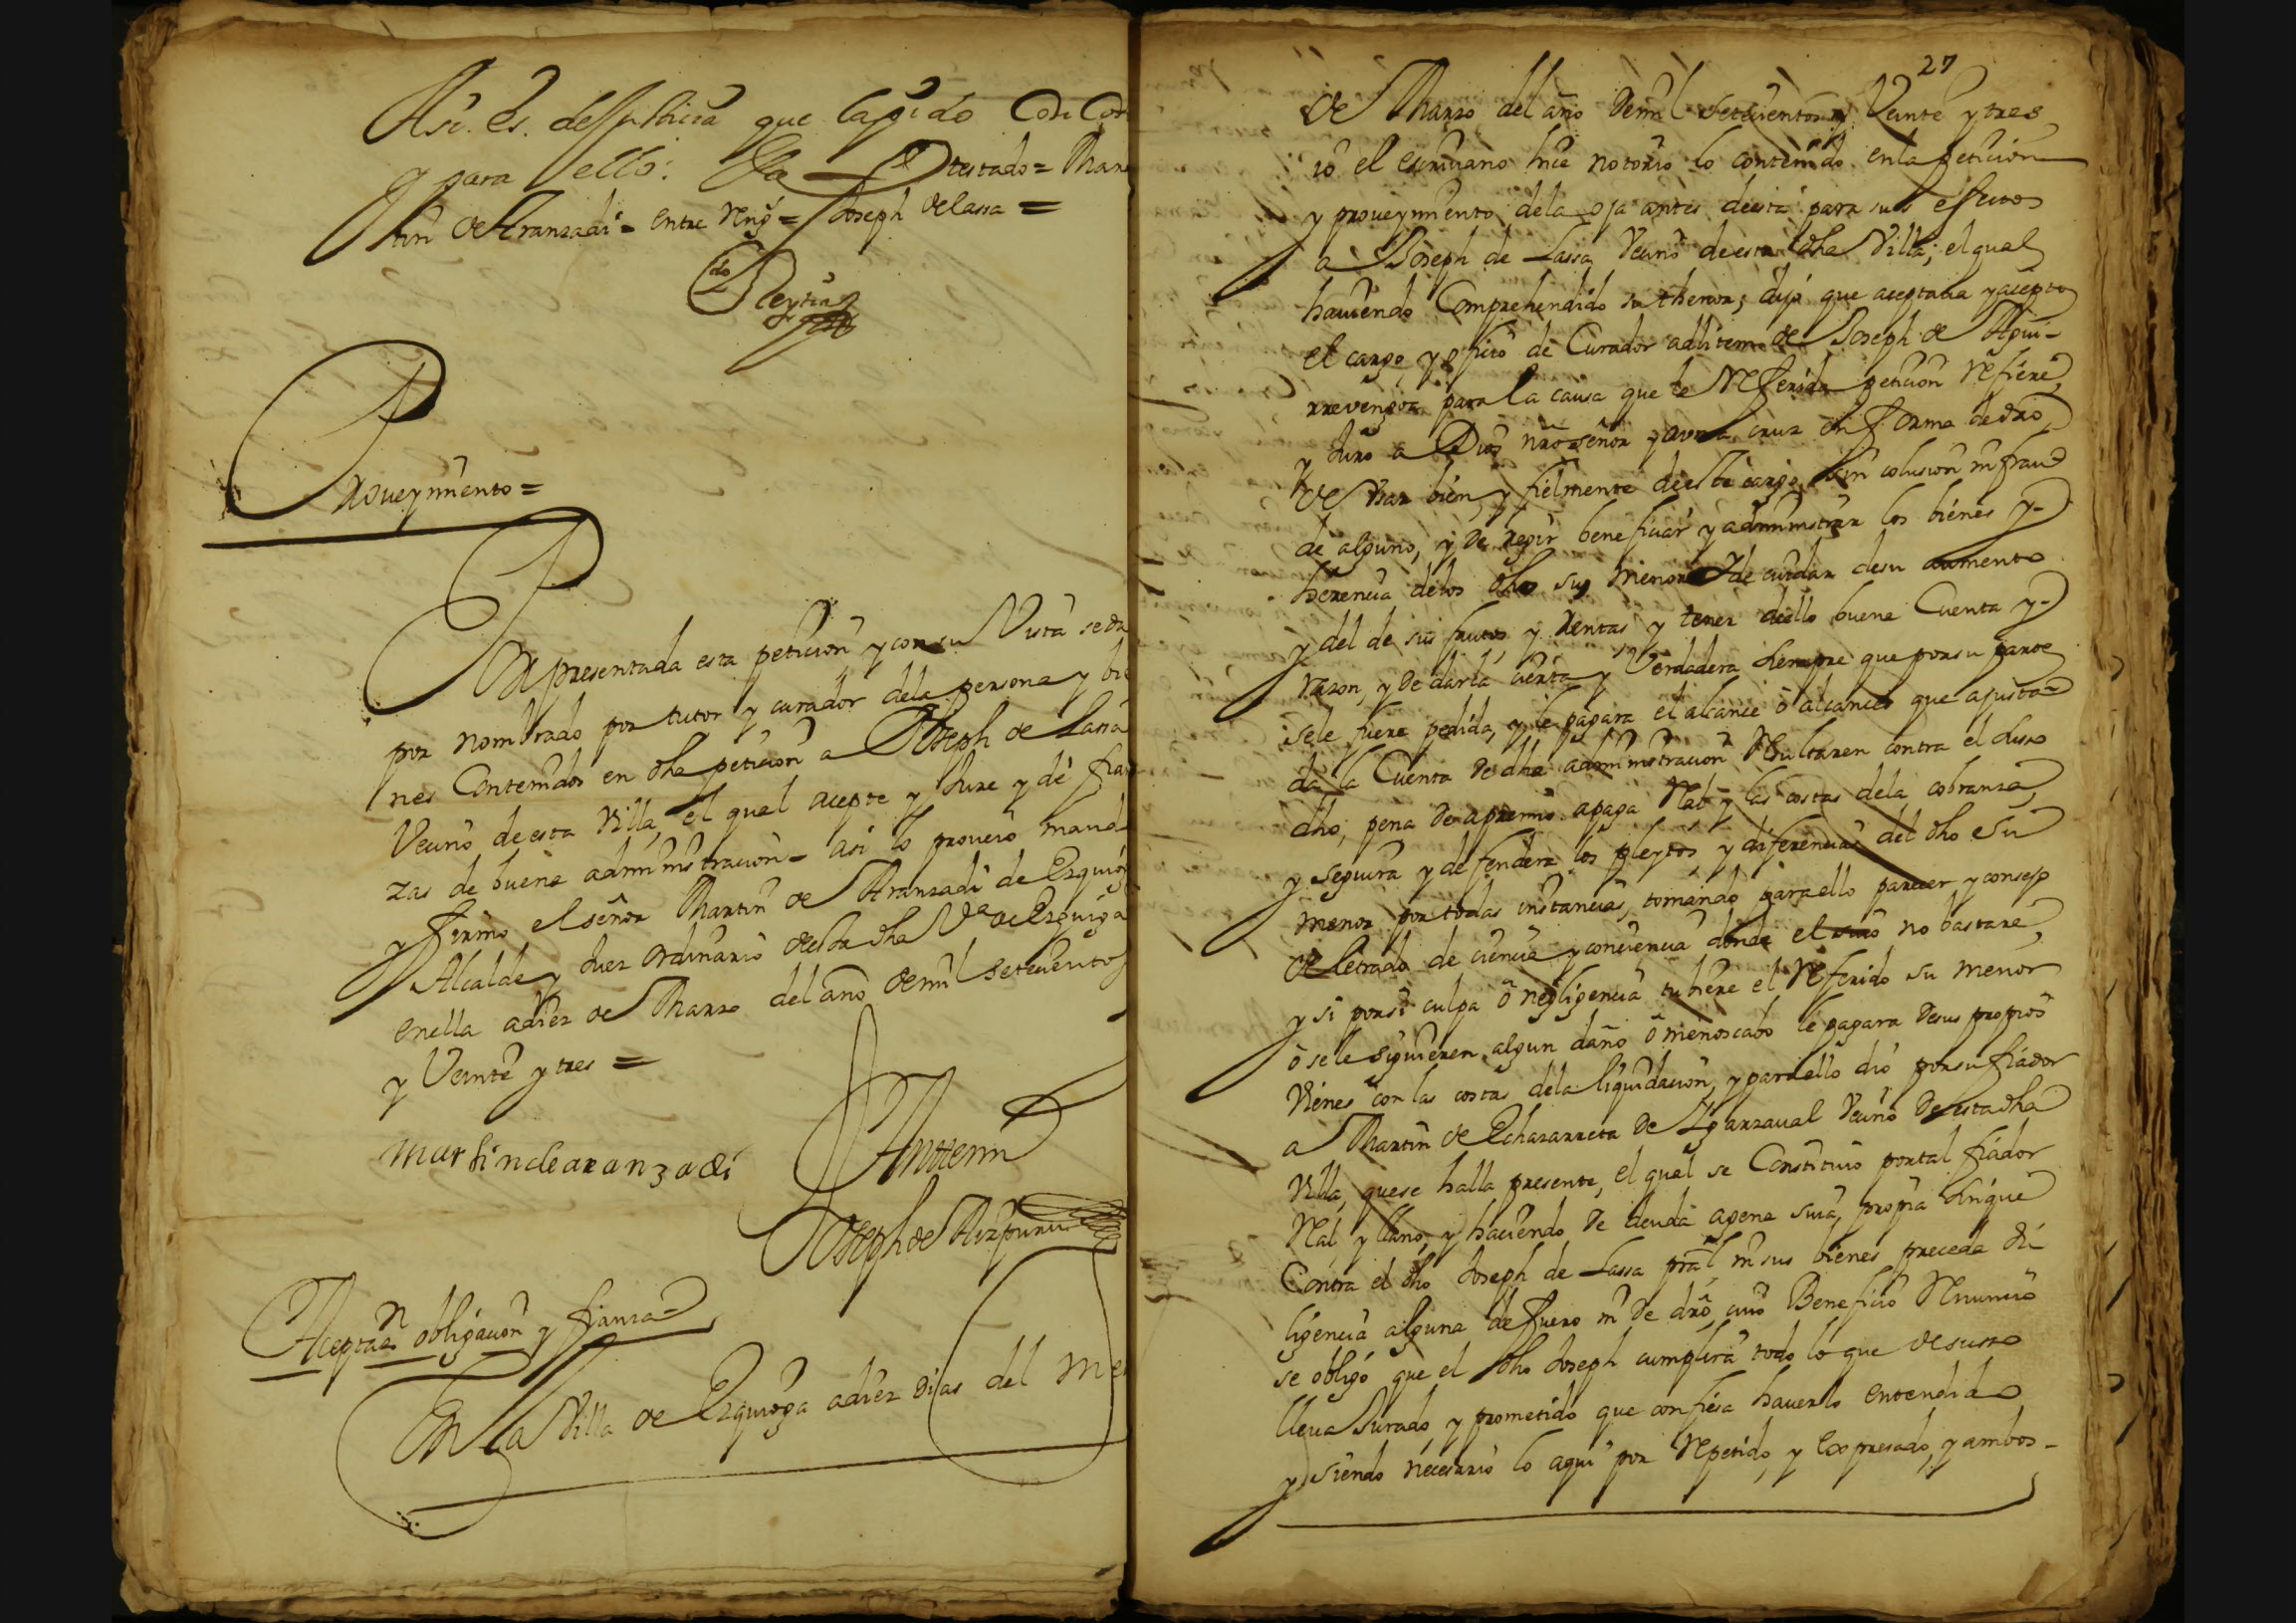 Asi es de Justicia que la pido Con Cos
y para ello: Va testado= Mar
tin de Aranzadi= entre Reng.s= Joseph de Lassa =
Proueymiento=
Por presentada esta petiçion y con su Vista se da
por nombrado por tutor y curador dela persona y bie
nes Contenidos en dha petiçion a Joseph de Lassa
Veçino deesta Villa, el qual acepte y Jure y dé fian
zas de buena administraçion= asi lo proueió mandó
y firmó el señor Martin de Aranzadi de Ezquiog
Alcalde y Juez ordinario desta dha V.a de Ezquioga
enella adiez de Marzo del año demil seteçientos
y Veinte y tres =
Martin de aranzadi
Antemi
Joseph de Aizpuru
Aceptaz.n obligaçion y fianza
En la Villa de Ezquioga adiez dias del me
27
de Marzo del año demil seteçientos y Veinte y tres
io el escriuano hiçe notorio lo contenido enla petiçion
y proueymiento dela oja antes deesta para sus efectos
a Joseph de Lassa Veçino deesta dha Villa; el qual
hauiendo Comprehendido su thenor; dijo que aceptaba y aceptó
el cargo y ofiçio de Curador adlitem de Joseph de Agui-
rrevengoa para la causa que le Referida petiçion Refiere,
y Juró a Dios nro señor y auna cruz en forma de dro
de Vsar bien y fielmente deeste cargo sin colusion ni frau
de alguno, y de regir benefiçiar y administrar los bienes y
herençia delos dhos sus menores y de cuidar desu aumento
y del de sus frutos y Rentas y tener deello buena Cuenta y
Razon, y de darla çierta y Verdadera Siempre que porsu parte
sele fuere pedida, y le pagara el alcance ò alcances que ajusta
da la Cuenta de dha administraçion Resultaren contra el suso
dho, pena de apremio apaga Real y las costas dela cobranza,
y seguira y defendera los pleytos y diferençias del dho su
menor por todas instançias, tomando paraello pareçer y consejo
de letrado de çiençia y conçiençia donde el suio no bastare,
y si porsu culpa ò negligençia tubiere el Referido su menor
ò sele siguieren algun daño ò menoscabo le pagara desus propios
Vienes con las costas dela liquidaçion, y paraello dió porsu fiador
a Martin de Echazarreta de Iganzaval Veçino deesta dha
Villa, quese halla presente, el qual se Constituió portal fiador
Real y llano, y haçiendo de deuda agena suia propia sinque
Contra el dho Joseph de Lassa pral ni sus bienes preçeda di-
ligençia alguna de fuero ni de dro cuio Benefiçio Renunçió
se obligó que el dho Joseph cumplirá todo lo que desuso
lleua Jurado, y prometido que confiesa hauerlo entendido
y siendo neçesario lo aqui por Repetido, y expresado, y ambos-